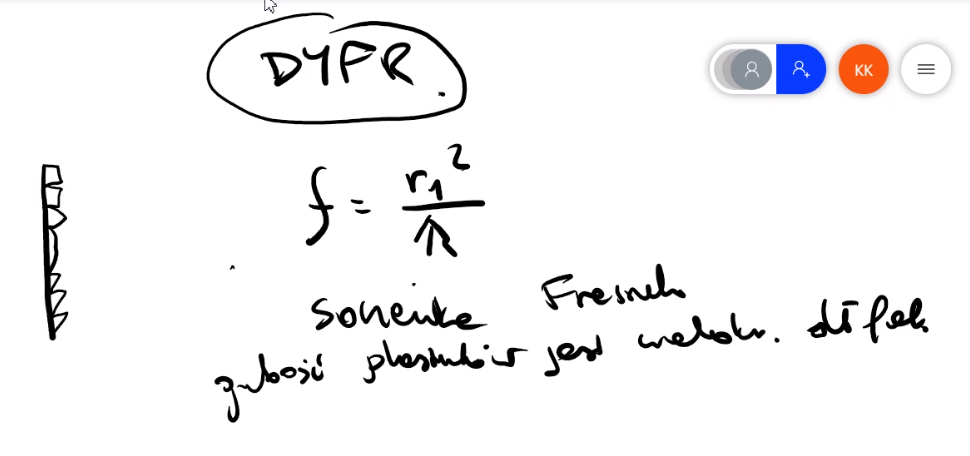 DYFR.
KK
f = r₁² / λ
soczewka Fresnela
grubość plasterków jest wielokr. dł fali